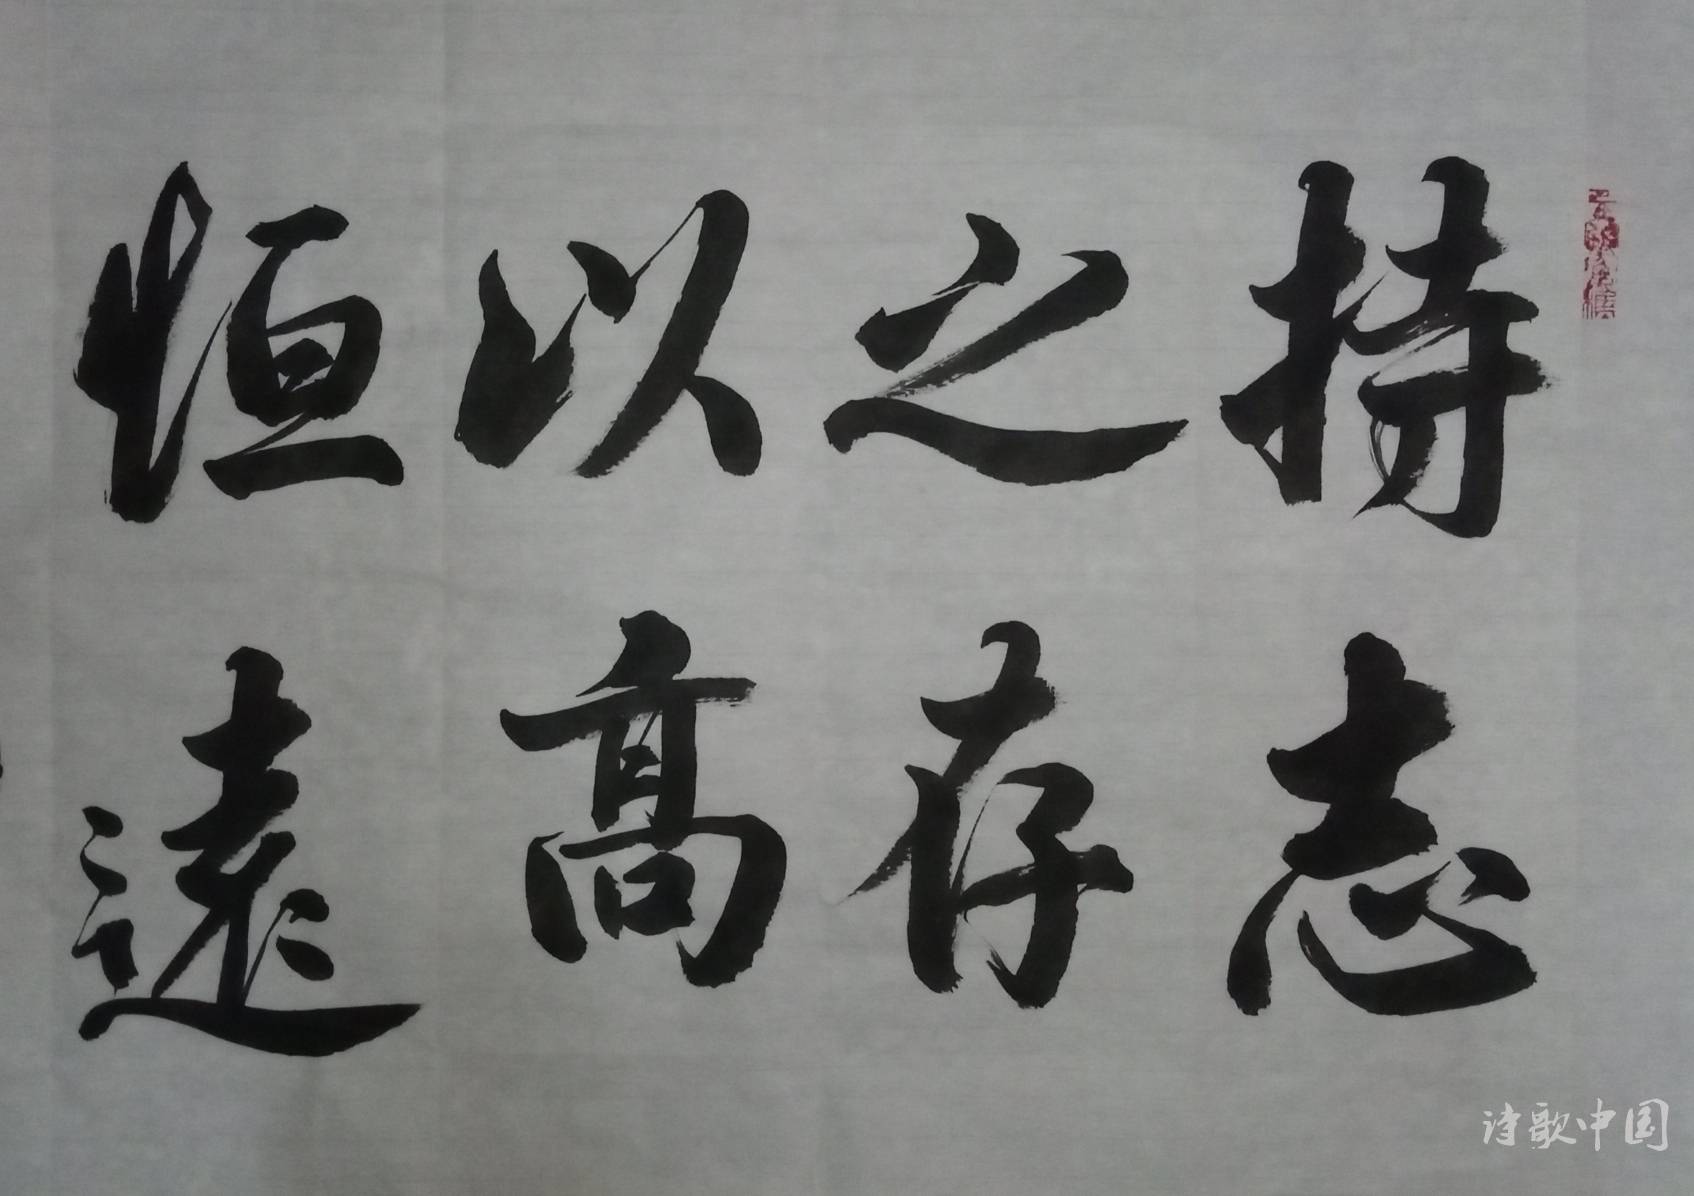 持之以恒
志存高遠
诗歌中国